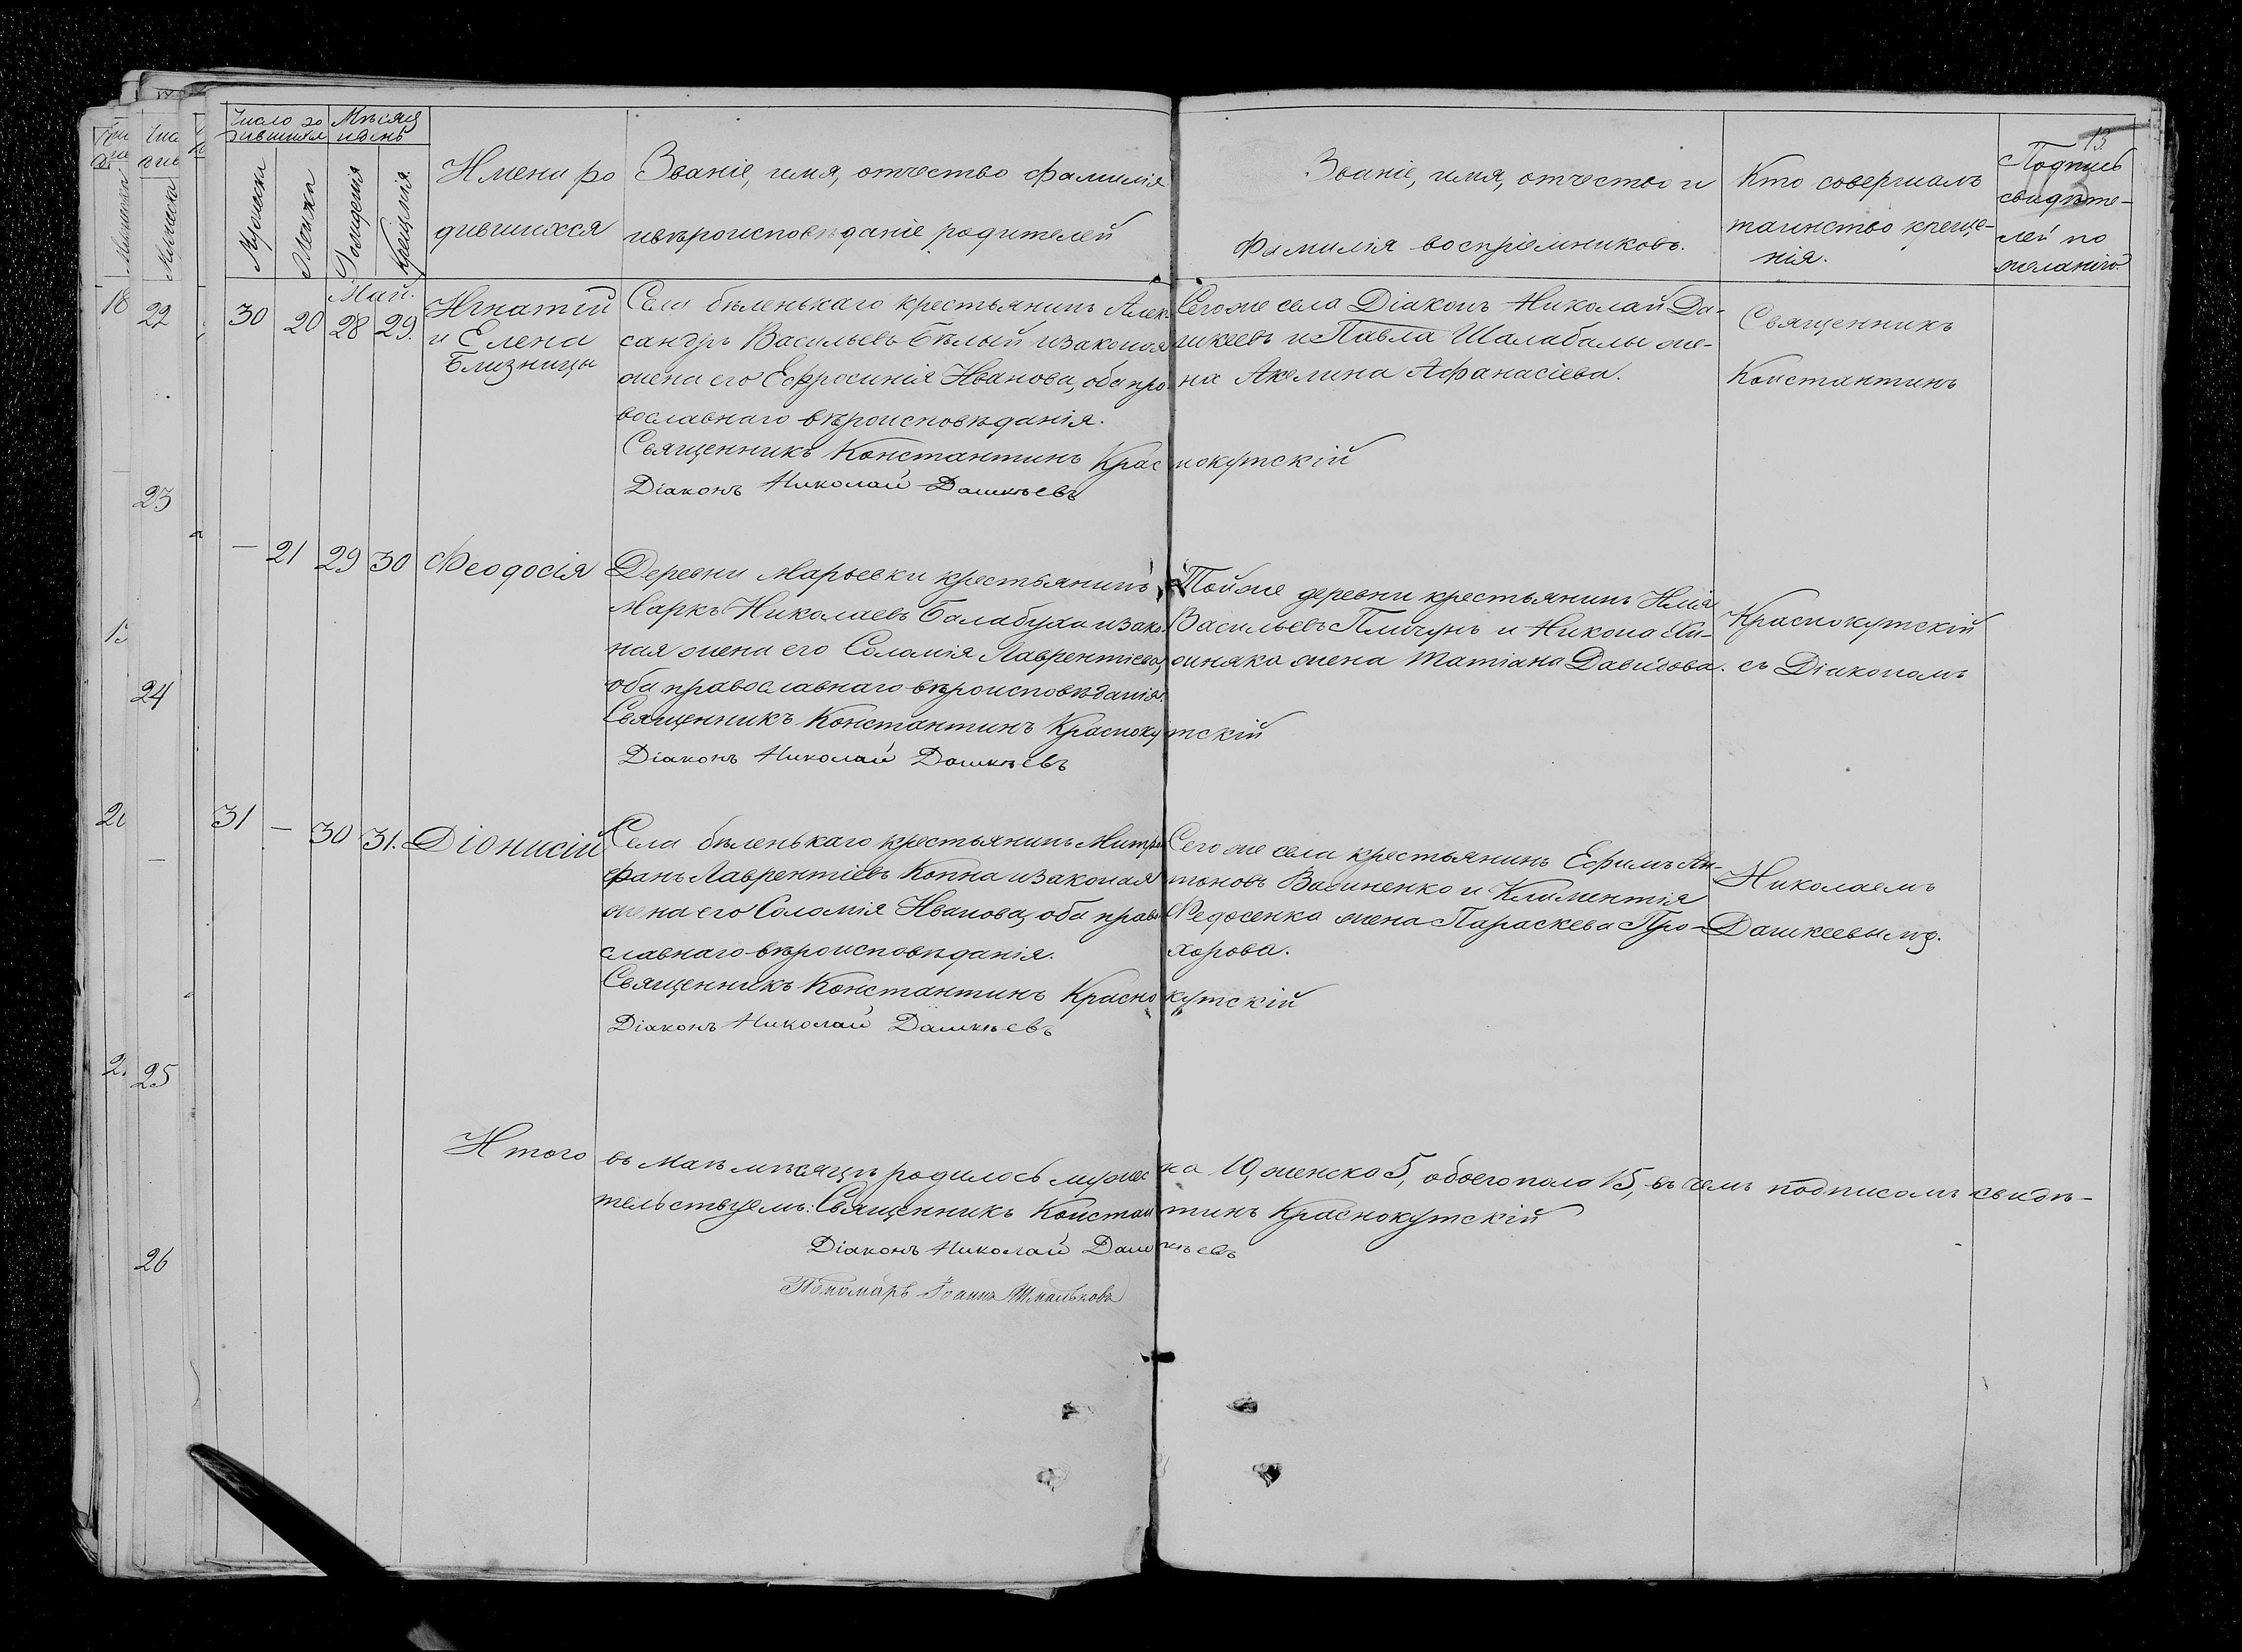 Число родившихся
Мѣсяцъ и день
Мужеска
Женска
Рожденія
Крещенія.
Имена ро
дившихся
Званіе, имя, отчество фамилія
и вѣроисповѣданіе родителей
Званіе, имя, отчество и
фамилія воспріемниковъ.
Кто совершалъ
таинство креще-
нія.
13
Подпись
свидѣте-
лей по
желанію
Май.
30 20 28 29.
Игнатій
и Елена
Близницы
Села бѣленькаго крестьянинъ Алек-
сандръ Васильевъ Бѣлый и законая
жена его Ефросинія Иванова, оба пра
вославнаго вѣроисповѣданія.
Сегоже села Діаконъ Николай Да-
шкеевъ и Павла Шалабалы же-
на Акелина Афанасіева.
Священникъ
Константинъ
Священникъ Константинъ Краснокутскій
Діаконъ Николай Дашкѣевъ
— 21 29 30 Феодосія
Деревни Марьевки крестьянинъ
Маркъ Николаевъ Балабуха и закон-
ная жена его Соломія Лаврентіева,
оба православнаго вѣроисповѣданія.
Тойже деревни крестьянинъ Илія
Васильевъ и Никона
жена Татіана Давидова.
Краснокутскій
съ Діакономъ
Священникъ Константинъ Краснокутскій
Діаконъ Николай Дашкѣевъ
31 — 30 31. Діонисій
Села бѣленькаго крестьянинъ Митро
фанъ Лаврентіевъ Копна и законая
жена его Соломія Иванова, оба право
славнаго вѣроисповѣданія.
Сегоже села крестьянинъ Ефимъ Ан-
тоновъ Васиненко и Климентія
Федосенка жена Параскева Про-
хорова.
Николаемъ
Дашкеевымъ.
Священникъ Константинъ Краснокутскій
Діаконъ Николай Дашкѣевъ
Итого въ маѣ мѣсяцѣ родилось мужеска 10, женска 5, обоего пола 15, въ чемъ подписомъ свидѣ-
тельствуемъ: Священникъ Константинъ Краснокутскій
Діаконъ Николай Дашкѣевъ
Пономарь Іоаннъ Шмальковъ
22
23
24
25
26